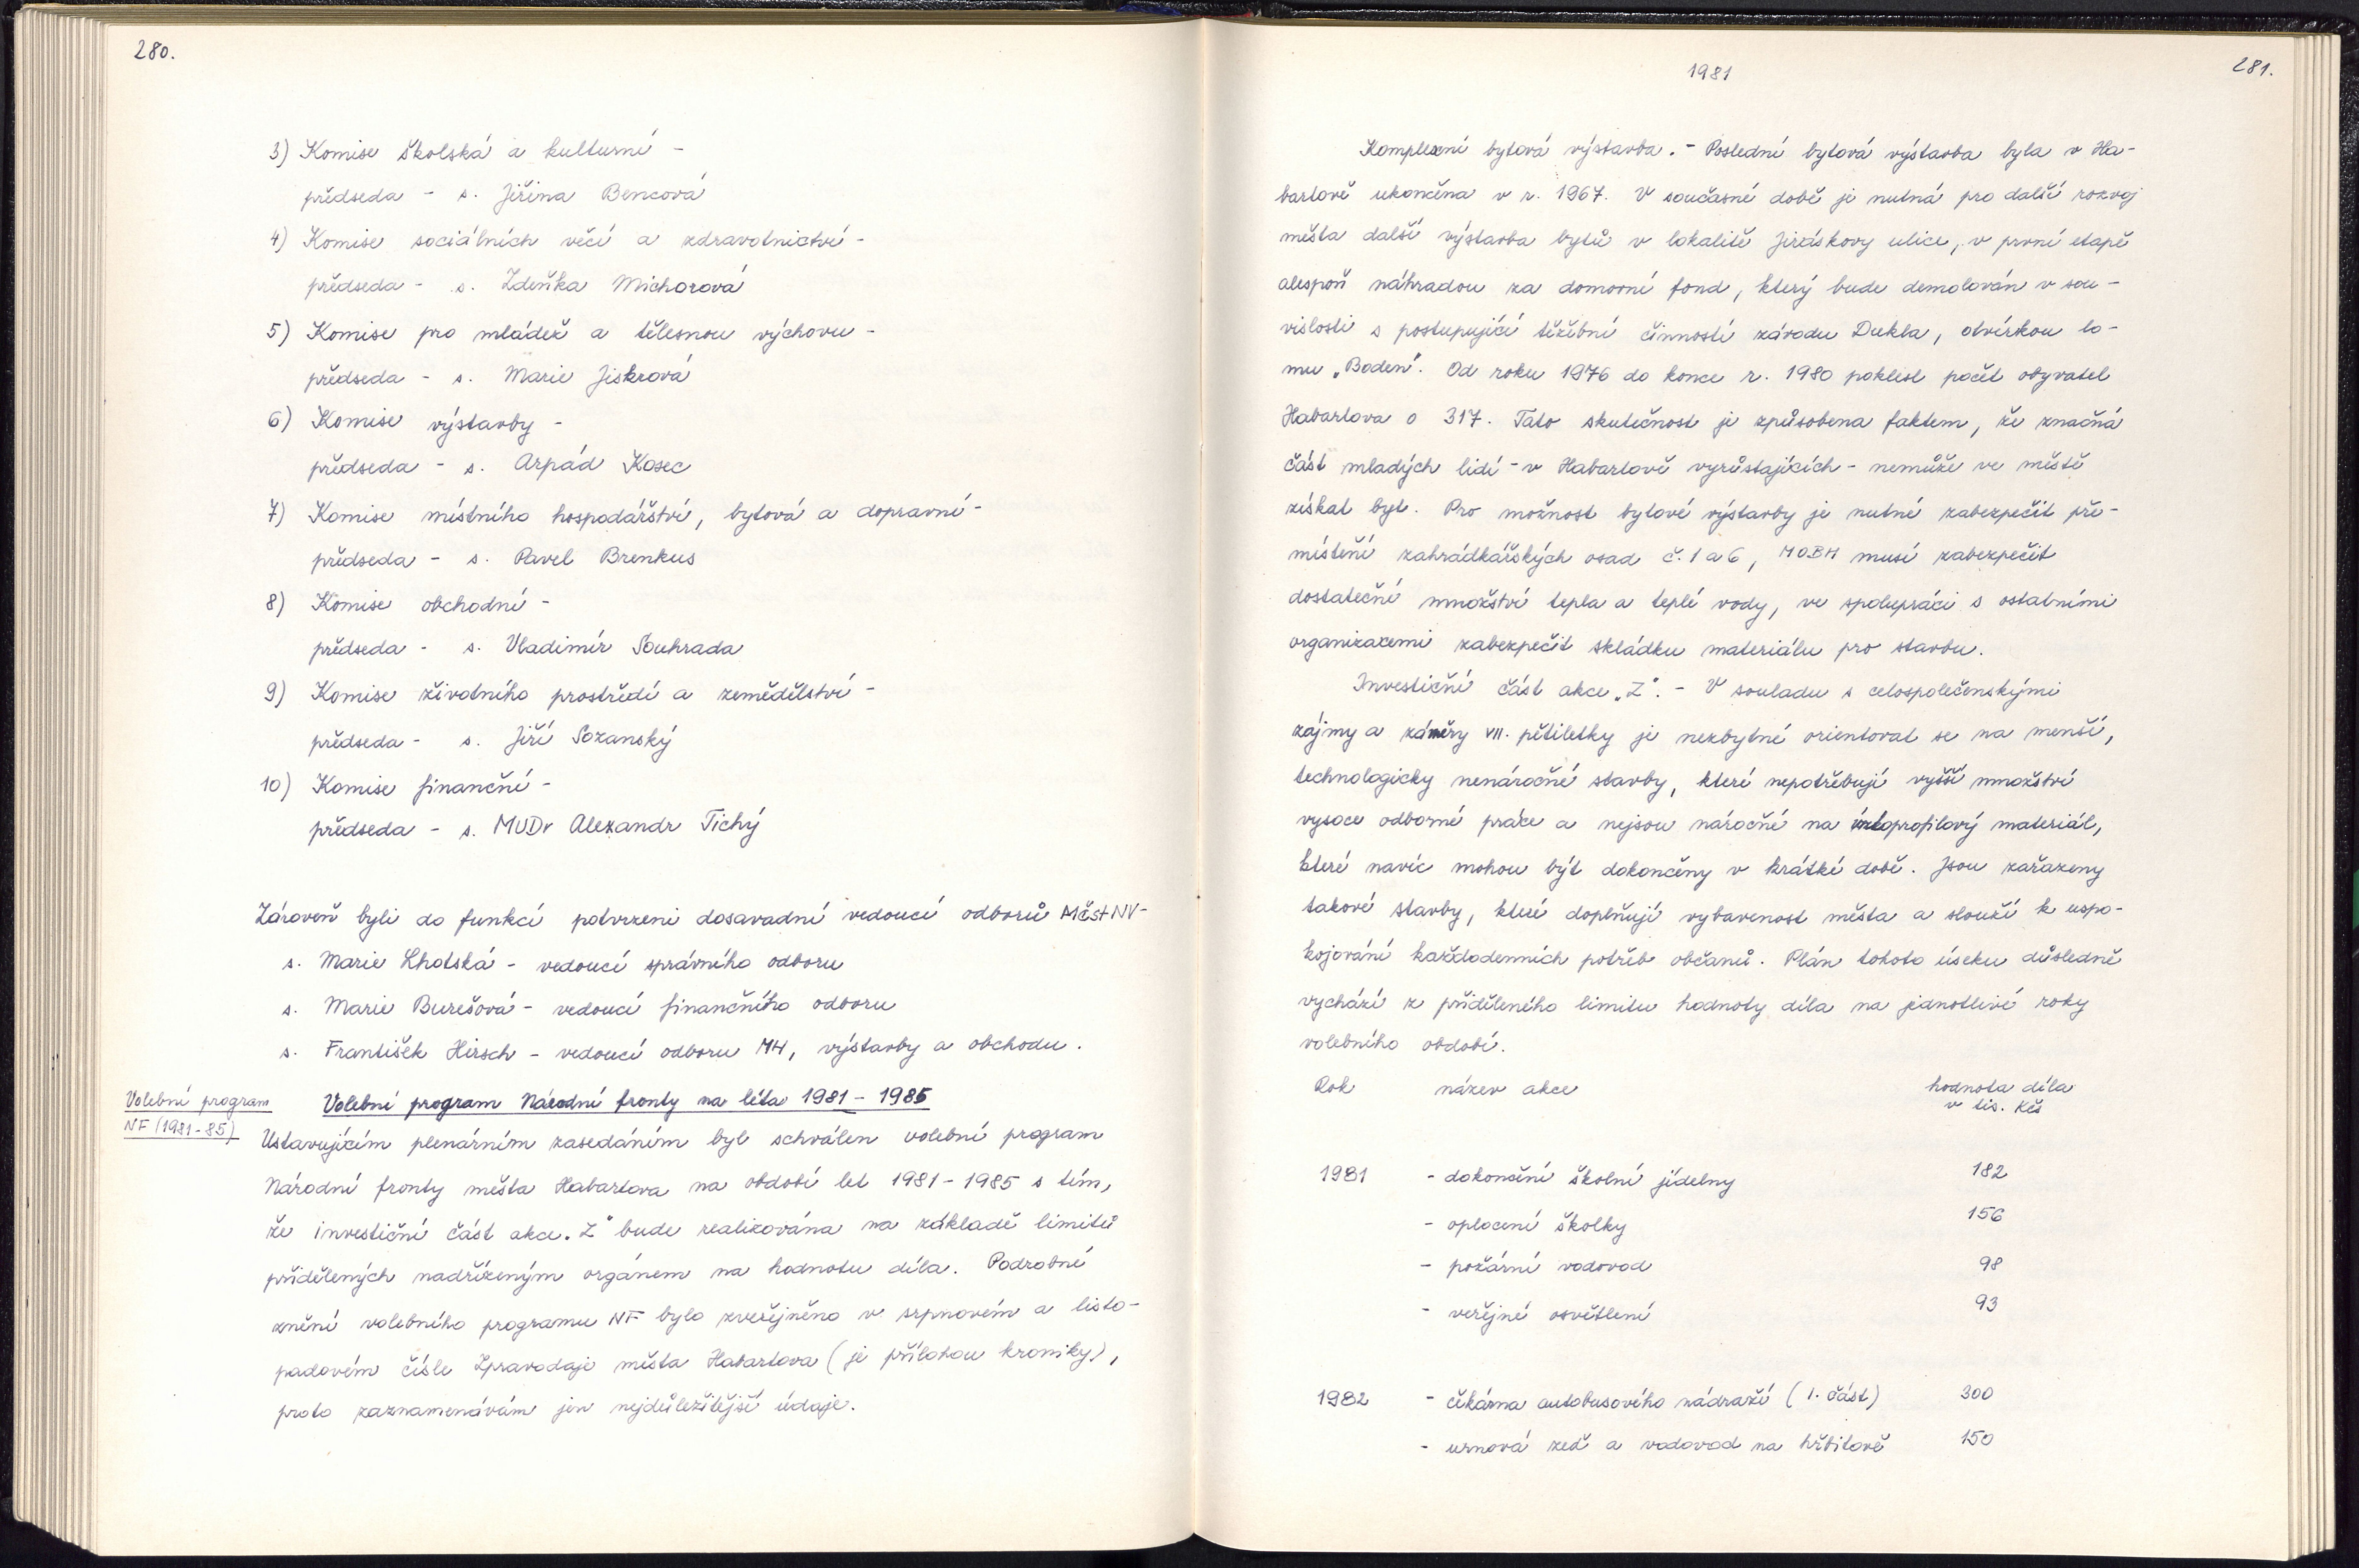 280.
3) Komise školská a kulturní -
předseda - s. Jiřina Bencová
4) Komise sociálních věcí a zdravotnictví -
předseda - s. Zdeňka Michorová
5) Komise pro mládež a tělesnou výchovu -
předseda - s. Marie Jiskrová
6) Komise výstavby -
předseda - s. Arpád Kosec
7) Komise místního hospodářství, bytová a dopravní -
předseda - s. Pavel Brenkus
8) Komise obchodní -
předseda - s. Vladimír Souhrada
9) Komise životního prostředí a zemědělství -
předseda - s. Jiří Sozanský
10) Komise finanční -
předseda - s. MUDr Alexandr Tichý
Zároveň byli do funkcí potvrzeni dosavadní vedoucí odborů MěstNV-
s. Marie Lhotská - vedoucí správního odboru
s. Marie Burešová - vedoucí finančního odboru
s. František Hirsch - vedoucí odboru MH, výstavby a obchodu.
Volební program
NF (1981-85)
Volební program Národní fronty na léta 1981 - 1985
Ustavujícím plenárním zasedáním byl schválen volební program
Národní fronty města Habartova na období let 1981 - 1985 s tím,
že investiční část akce „Z" bude realizována na základě limitů
přidělených nadřízeným orgánem na hodnotu díla. Podrobné
znění volebního programu NF bylo zveřejněno v srpnovém a listo-
padovém čísle Zpravodaje města Habartova (je přílohou kroniky),
proto zaznamenávám jen nejdůležitější údaje.
1981
281.
Komplexní bytová výstavba. - Poslední bytová výstavba byla v Ha-
bartově ukončena v r. 1967. V současné době je nutná pro další rozvoj
města další výstavba bytů v lokalitě Jiráskovy ulice, v první etapě
alespoň náhradou za domovní fond, který bude demolován v sou-
vislosti s postupující těžební činností závodu Dukla, otvírkou lo-
mu „Boden". Od roku 1976 do konce r. 1980 poklesl počet obyvatel
Habartova o 317. Tato skutečnost je způsobena faktem, že značná
část mladých lidí - v Habartově vyrůstajících - nemůže ve městě
získat byt. Pro možnost bytové výstavby je nutné zabezpečit pře-
místění zahrádkářských osad č. 1 a 6, MOBH musí zabezpečit
dostatečné množství tepla a teplé vody, ve spolupráci s ostatními
organizacemi zabezpečit skládku materiálu pro stavbu.
Investiční část akce „Z". - V souladu s celospolečenskými
zájmy a záměry VII. pětiletky je nezbytné orientovat se na menší,
technologicky nenáročné stavby, které nepotřebují vyšší množství
vysoce odborné práce a nejsou náročné na úzkoprofilový materiál,
které navíc mohou být dokončeny v krátké době. Jsou zařazeny
takové stavby, které doplňují vybavenost města a slouží k uspo-
kojování každodenních potřeb občanů. Plán tohoto úseku důsledně
vychází z přiděleného limitu hodnoty díla na jednotlivé roky
volebního období.
Rok název akce hodnota díla
v tis. Kčs
1981 - dokončení školní jídelny 182
- oplocení školky 156
- požární vodovod 98
- veřejné osvětlení 93
1982 - čekárna autobusového nádraží (1. část) 300
- urnová zeď a vodovod na hřbitově 150